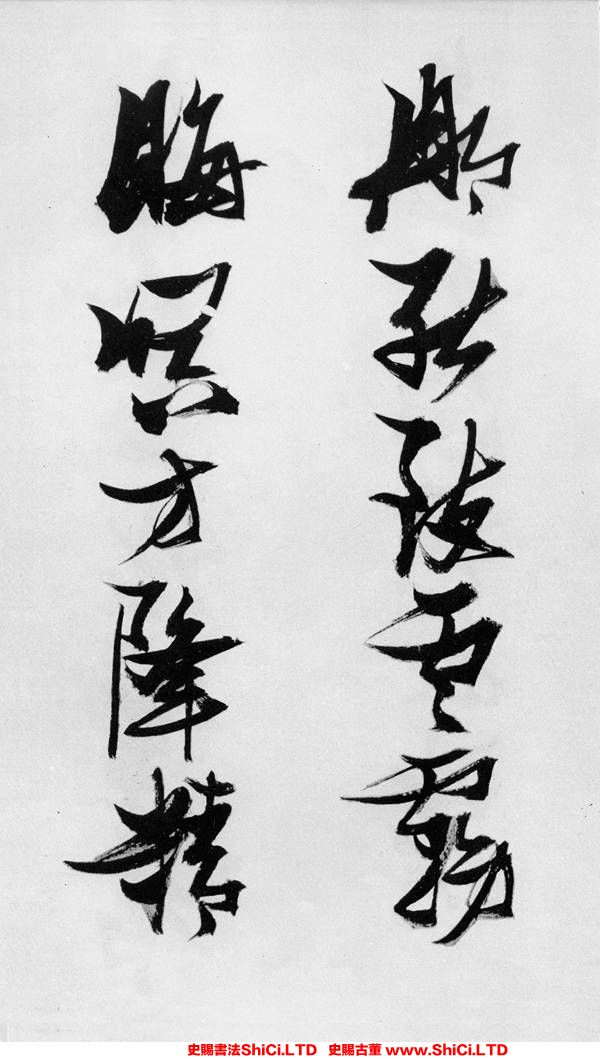 能致雲霧
晦暝方降精
史賜書法ShiCi.LTD 史賜古董 www.ShiCi.LTD